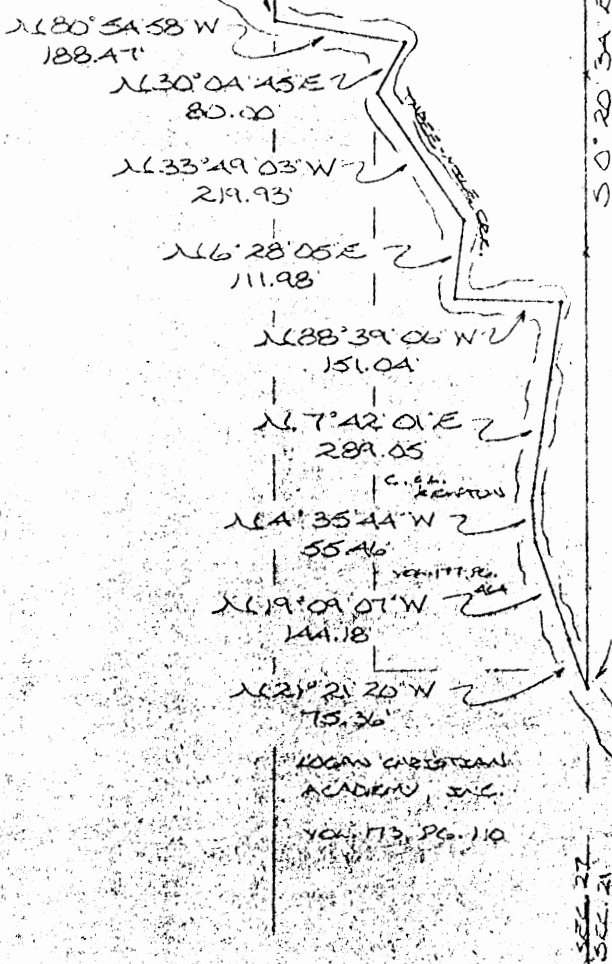 N 80° 54' 58" W
188.47'
N 30° 04' 45" E
80.00
N 33° 49' 03" W
219.93'
THREE-MILE CRK.
N 6° 28' 05" E
111.98'
N 88° 39' 06" W
151.04'
N 7° 42' 01" E
289.05
N 4° 35' 44" W
55.46'
VOL. 177, PG.
464
N 19° 09' 07" W
144.18'
N 21° 21' 20" W
75.36'
LOGAN CHRISTIAN
ACADEMY, INC.
VOL. 173, PG. 110
S 0° 20' 34"
SEC. 27
SEC. 21